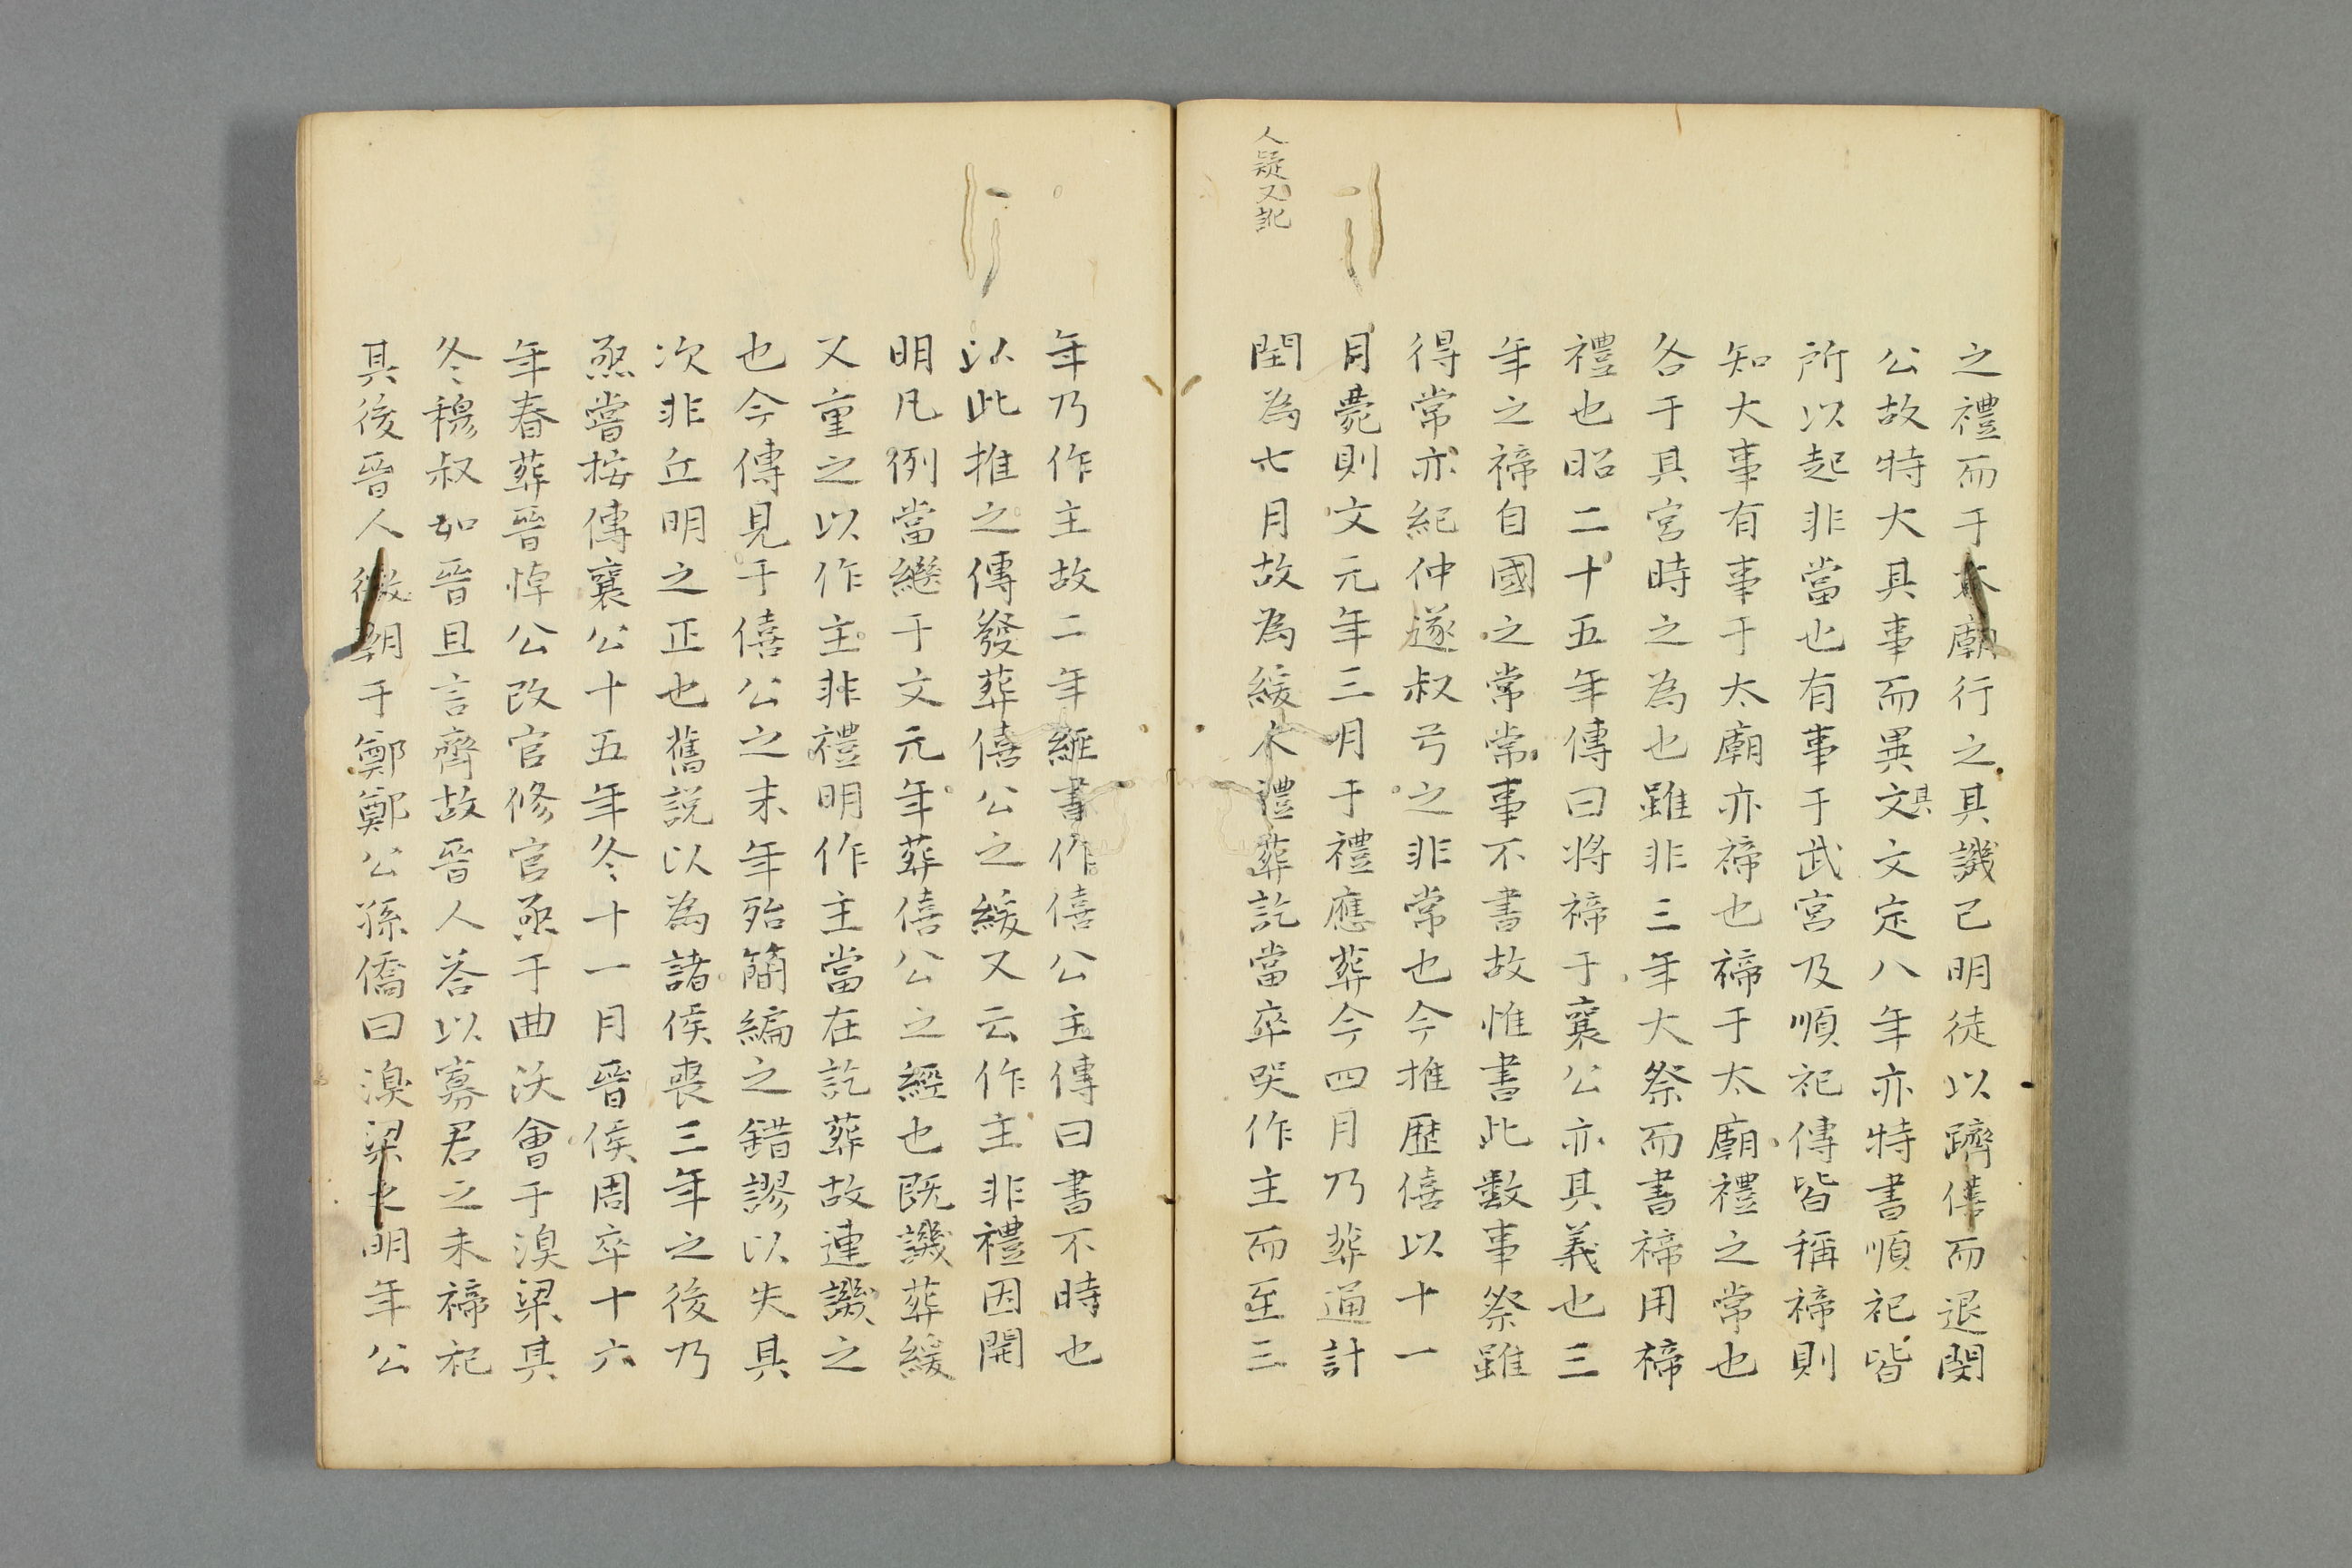 之禮而于太廟行之其譏已明徒以躋僖而退閔
公故特大其事而異文其文定八年亦特書順祀皆
所以起非當也有事于武宮及順祀傳皆稱禘則
知大事有事于太廟亦禘也禘于太廟禮之常也
各于其宮時之為也雖非三年大祭而書禘用禘
禮也昭二十五年傳曰將禘于襄公亦其義也三
年之禘自國之常常事不書故惟書此數事祭雖
得常亦紀仲遂叔弓之非常也今推歷僖以十一
月薨則文元年三月于禮應葬今四月乃葬通計
閏為七月故為緩禮葬訖當卒哭作主而至三
人疑又訛
年乃作主故二年經書作僖公主傳曰書不時也
以此推之傳發葬僖公之緩又云作主非禮因開
明凡例當繼于文元年葬僖公之經也既譏葬緩
又重之以作主非禮明作主當在訖葬故連譏之
也今傳見于僖公之末年殆簡編之錯謬以失其
次非丘明之正也舊説以為諸侯喪三年之後乃
烝嘗按傳襄公十五年冬十一月晉侯周卒十六
年春葬晉悼公改官修官烝于曲沃會于湨梁其
冬穆叔如晉且言齊故晉人荅以寡君之未禘祀
其後晉人徵朝于鄭鄭公孫僑曰湨梁之明年公